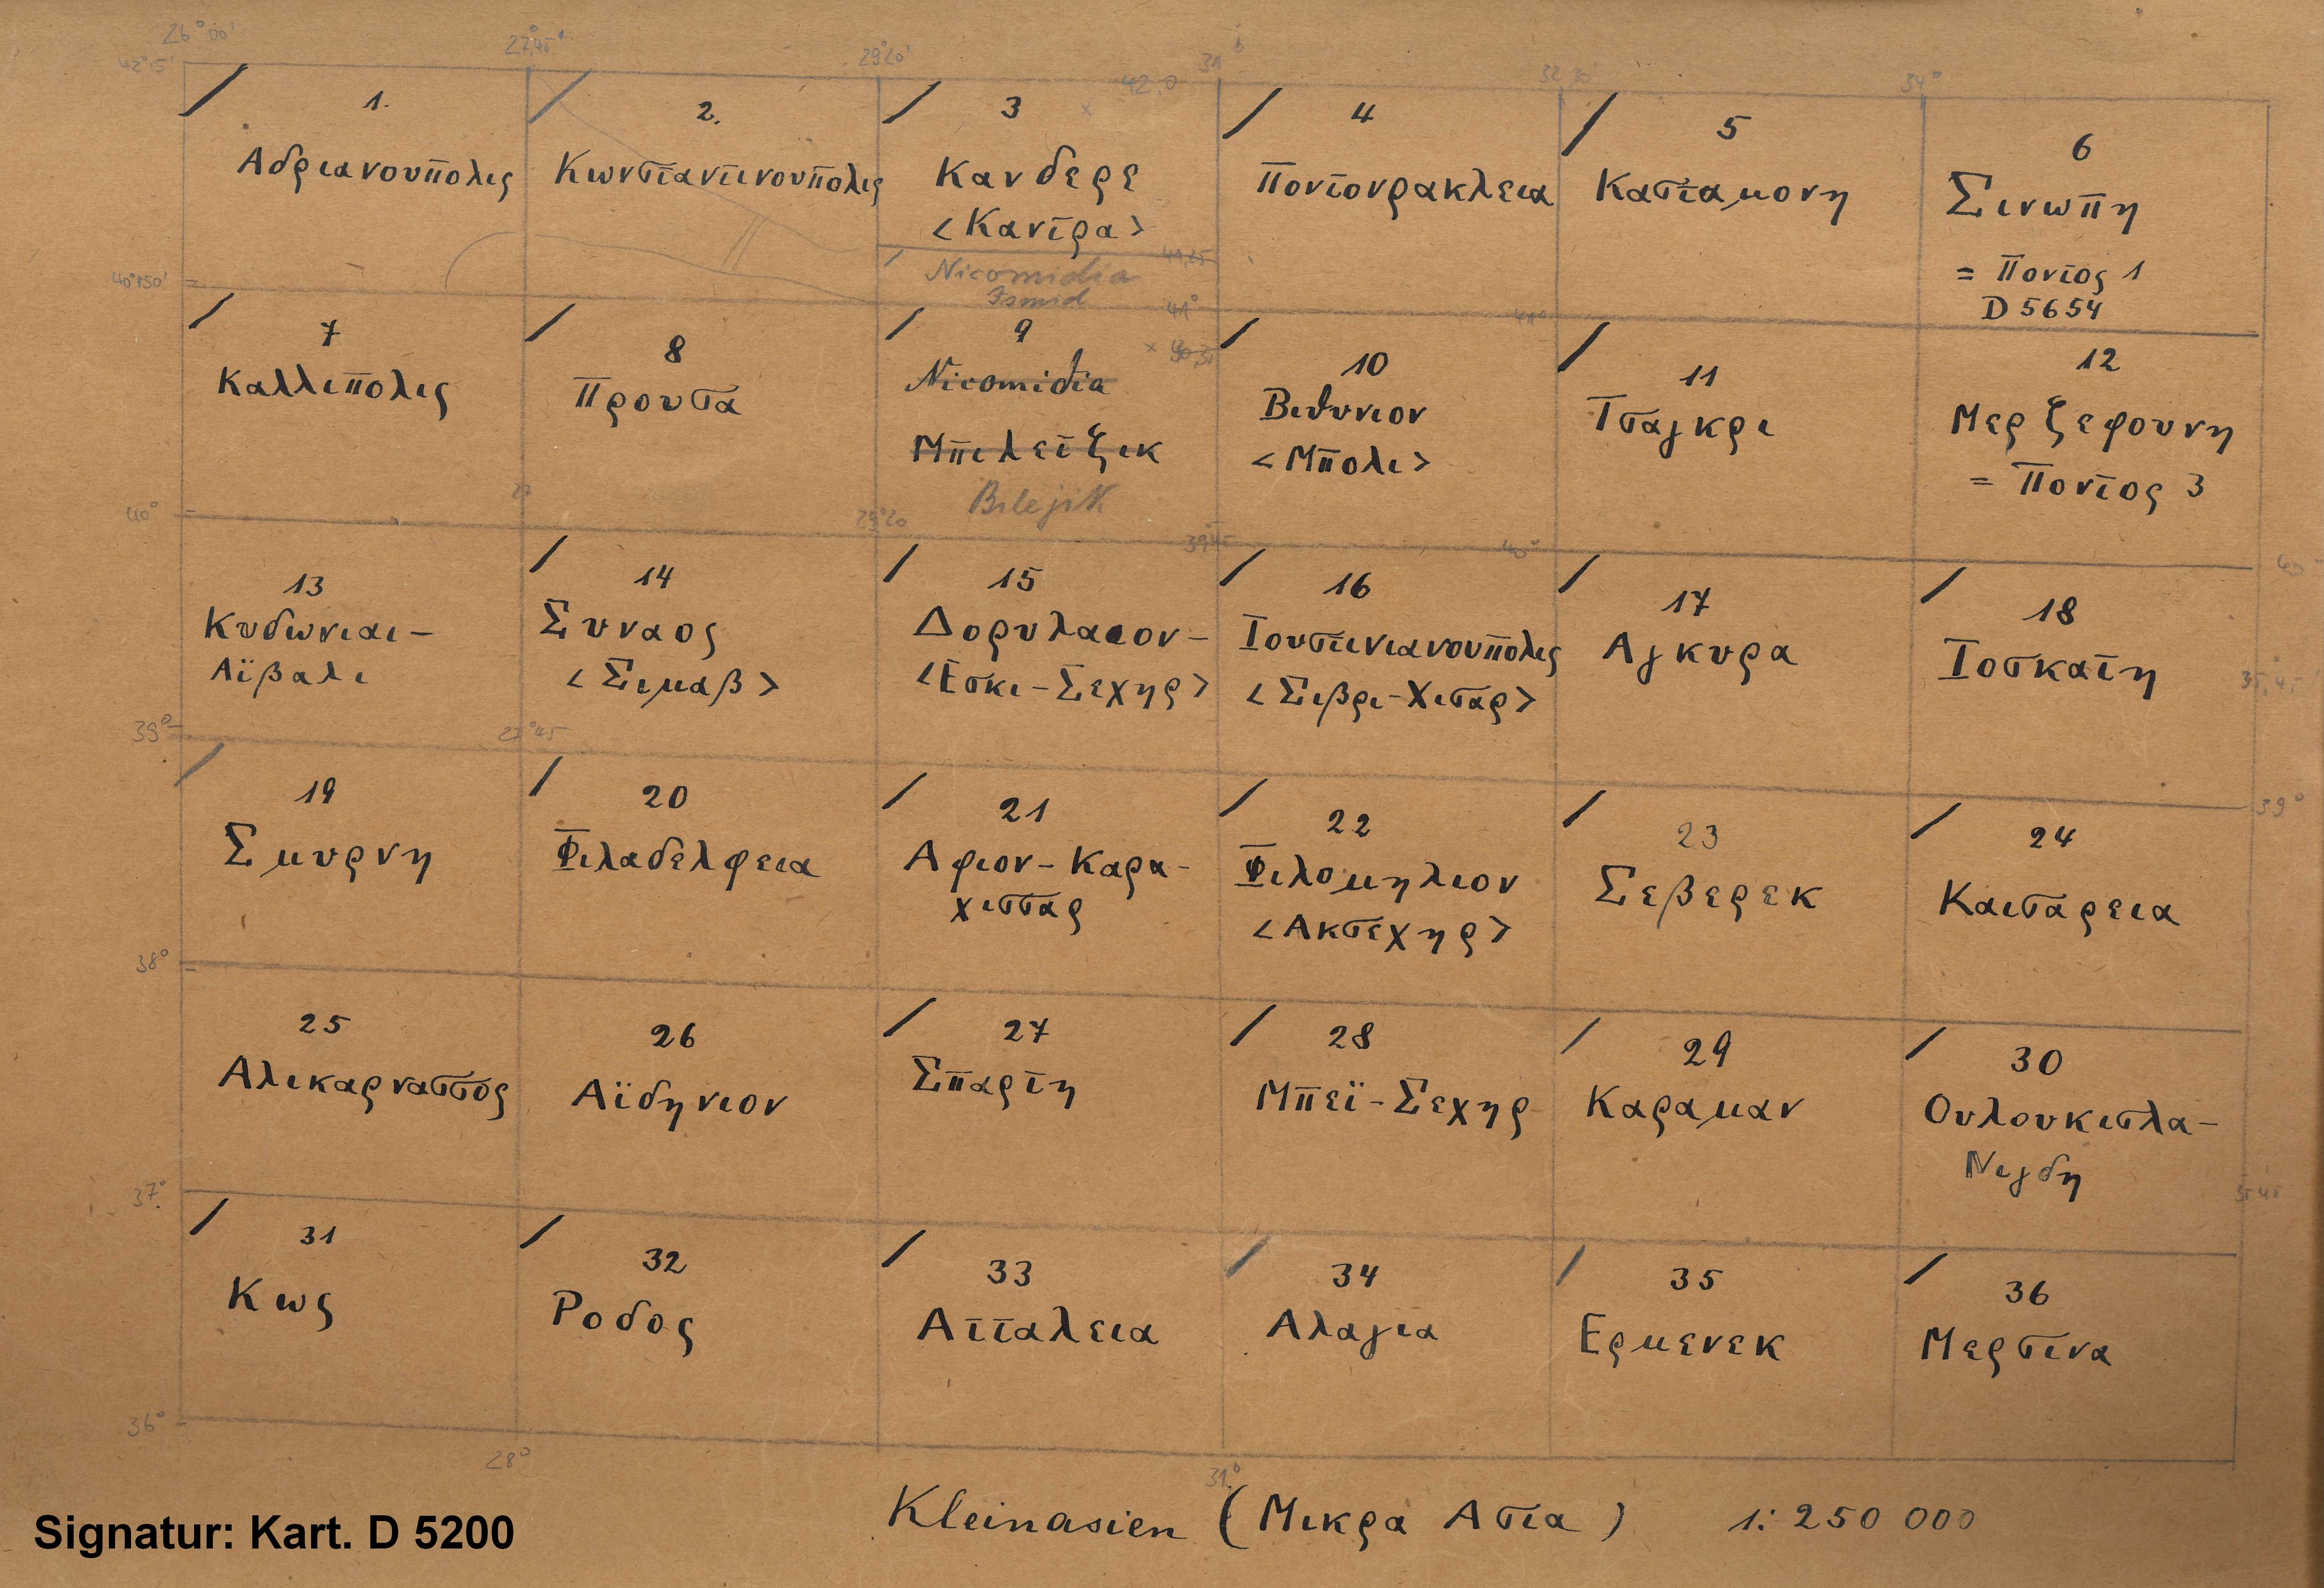 26°00'
27°45'
29°20'
31°
32,30'
34°
42°15'
42,0
1.
Αδριανουπολις
2.
Κωνσταντινουπολις
3
Κανδερε
<Καντρα>
41,25
Nicomidia
Ismid
4
Ποντονρακλεια
5
Κασταμονη
6
Σινωπη
= Ποντος 1
D 5654
40°50'
41°
41°
7
Καλλιπολις
8
Προυσα
9
Nicomidia
Μπιλετζικ
Bilejik
10
Βιθυνιον
<Μπολι>
11
Τσαγκρι
12
Μερζεφουνη
= Ποντος 3
40°
29°20
39°45
40°
40
13
Κυδωνιαι-
Αϊβαλι
14
Συναος
<Σιμαβ>
15
Δορυλαιον-
<Εσκι-Σεχηρ>
16
Ιουστινιανουπολις
<Σιβρι-Χισαρ>
17
Αγκυρα
18
Ιοσκατη
35,45
39°
27°45
39°
19
Σμυρνη
20
Φιλαδελφεια
21
Αφιον-Καρα-
χισσαρ
22
Φιλομηλιον
<Ακσεχηρ>
23
Σεβερεκ
24
Καισαρεια
38°
25
Αλικαρνασσος
26
Αϊδηνιον
27
Σπαρτη
28
Μπεϊ-Σεχηρ
29
Καραμαν
30
Ουλουκισλα-
Νιγδη
37°
35 45
31
Κως
32
Ροδος
33
Ατταλεια
34
Αλαγια
35
Ερμενεκ
36
Μερσινα
36°
28°
31°
Kleinasien (Μικρα Ασια) 1:250 000
Signatur: Kart. D 5200